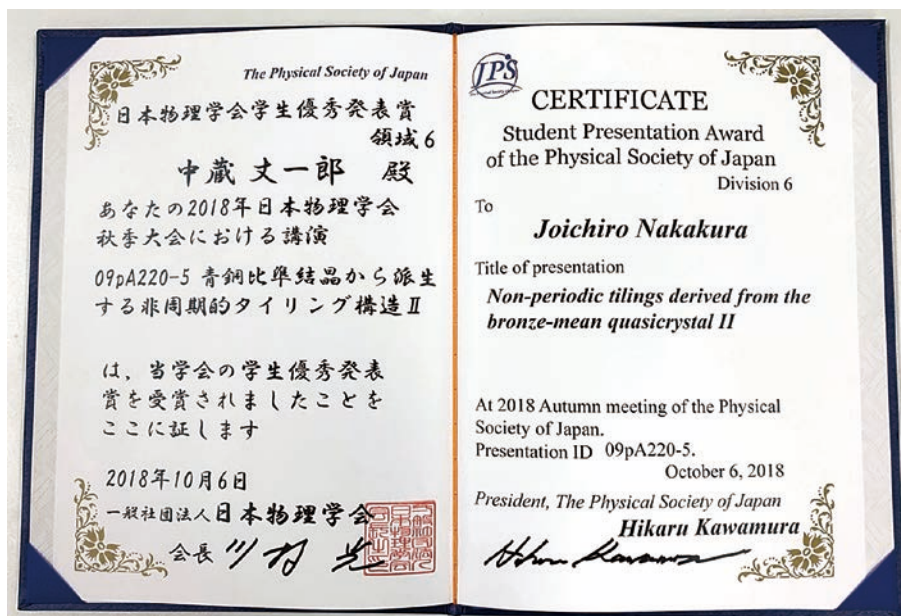 The Physical Society of Japan
日本物理学会学生優秀発表賞
領域6
中蔵丈一郎 殿
あなたの2018年日本物理学会
秋季大会における講演
09pA220-5 青銅比準結晶から派生
する非周期的タイリング構造Ⅱ
は、当学会の学生優秀発表
賞を受賞されましたことを
ここに証します
2018年10月6日
一般社団法人日本物理学会
会長 川村 光
JPS
CERTIFICATE
Student Presentation Award
of the Physical Society of Japan
Division 6
To
Joichiro Nakakura
Title of presentation
Non-periodic tilings derived from the
bronze-mean quasicrystal II
At 2018 Autumn meeting of the Physical
Society of Japan.
Presentation ID 09pA220-5.
October 6, 2018
President, The Physical Society of Japan
Hikaru Kawamura
Hikaru Kawamura